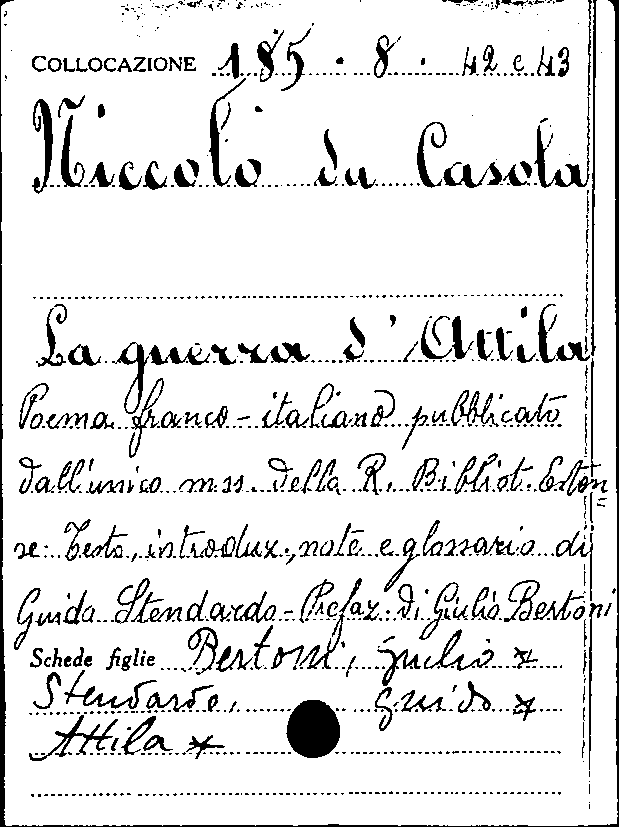 COLLOCAZIONE 185 . 8 . 42 e 43
Niccolò da Casola
La guerra d'Attila
Poema franco-italiano pubblicato
dall'unico mss. della R. Bibliot. Esten=
se. Testo, introduz., note e glossario di
Guido Stendardo - Prefaz. di Giulio Bertoni
Schede figlie Bertoni, Giulio *
Stendardo, Guido *
Attila *